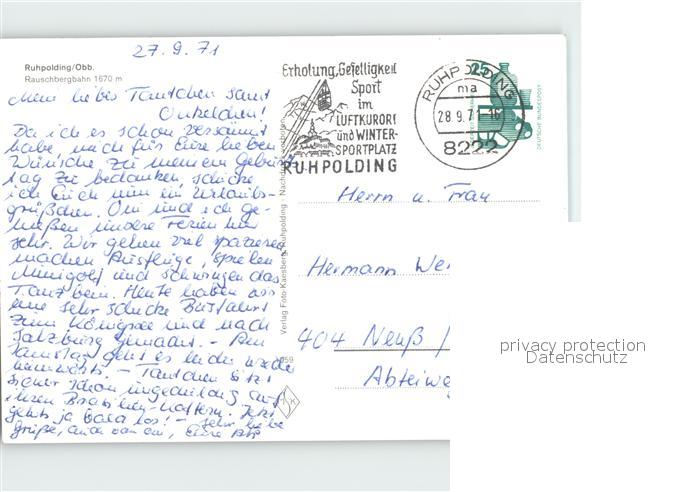 27.9.71
Ruhpolding/Obb.
Rauschbergbahn 1670 m
Mein liebes Tantchen samt
Onkelchen!
Da ich es schon versäumt
habe, mich für Eure lieben
Wünsche zu meinem Geburts-
tag zu bedanken, schicke
ich Euch nun ein Urlaubs-
grüßchen. Omi und ich ge-
nießen unsere Ferien hier
sehr. Wir gehen viel spazieren
machen Ausflüge, spielen
Minigolf und schwingen das
Tanzbein. Heute haben wir
eine sehr schicke Busfahrt
zum Königsee und nach
Salzburg gemacht. - Am
Samstag geht es leider wieder
heimwärts. - Tantchen sitzt
sicher schon ungeduldig auf
ihren Brasilien-Koffern. Jetzt
geht's ja bald los! - Sehr liebe
Grüße, auch von Omi, Eure
Erholung, Geselligkeit
Sport
im
LUFTKURORT
und WINTER-
SPORTPLATZ
RUHPOLDING
RUHPOLDING
ma
28.9.71-16
8222
25
DEUTSCHE BUNDESPOST
Verlag Foto-Kaesberg, Ruhpolding - Nachdruck verboten
Herrn u. Frau
Hermann We
404 Neuß /
Abteiweg
privacy protection
Datenschutz